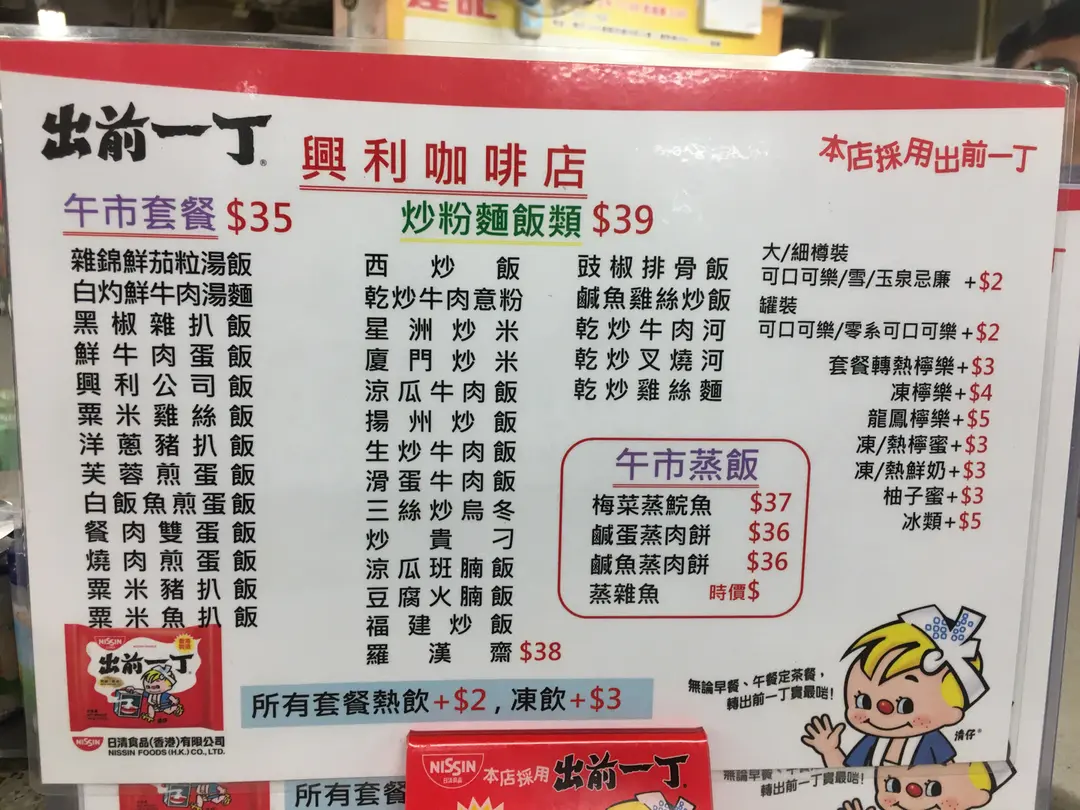 出前一丁
興利咖啡店
本店採用出前一丁
午市套餐 $35
雜錦鮮茄粒湯飯
白灼鮮牛肉湯麵
黑椒雜扒飯
鮮牛肉蛋飯
興利公司飯
粟米雞絲飯
洋蔥豬扒飯
芙蓉煎蛋飯
白飯魚煎蛋飯
餐肉雙蛋飯
燒肉煎蛋飯
粟米豬扒飯
粟米魚扒飯
炒粉麵飯類 $39
西炒飯
乾炒牛肉意粉
星洲炒米
廈門炒米
涼瓜牛肉飯
揚州炒飯
生炒牛肉飯
滑蛋牛肉飯
三絲炒烏冬
炒貴刁
涼瓜班腩飯
豆腐火腩飯
福建炒飯
羅漢齋 $38
豉椒排骨飯
鹹魚雞絲炒飯
乾炒牛肉河
乾炒叉燒河
乾炒雞絲麵
午市蒸飯
梅菜蒸鯇魚 $37
鹹蛋蒸肉餅 $36
鹹魚蒸肉餅 $36
蒸雜魚 時價$
大/細樽裝
可口可樂/雪/玉泉忌廉 +$2
罐裝
可口可樂/零系可口可樂+$2
套餐轉熱檸樂+$3
凍檸樂+$4
龍鳳檸樂+$5
凍/熱檸蜜+$3
凍/熱鮮奶+$3
柚子蜜+$3
冰類+$5
所有套餐熱飲+$2,凍飲+$3
無論早餐、午餐定茶餐,
轉出前一丁實最啱!
清仔
NISSIN
出前一丁
NISSIN 日清食品(香港)有限公司
NISSIN FOODS (H.K.) CO., LTD.
NISSIN
本店採用出前一丁
所有套餐
轉出前一丁實最啱!